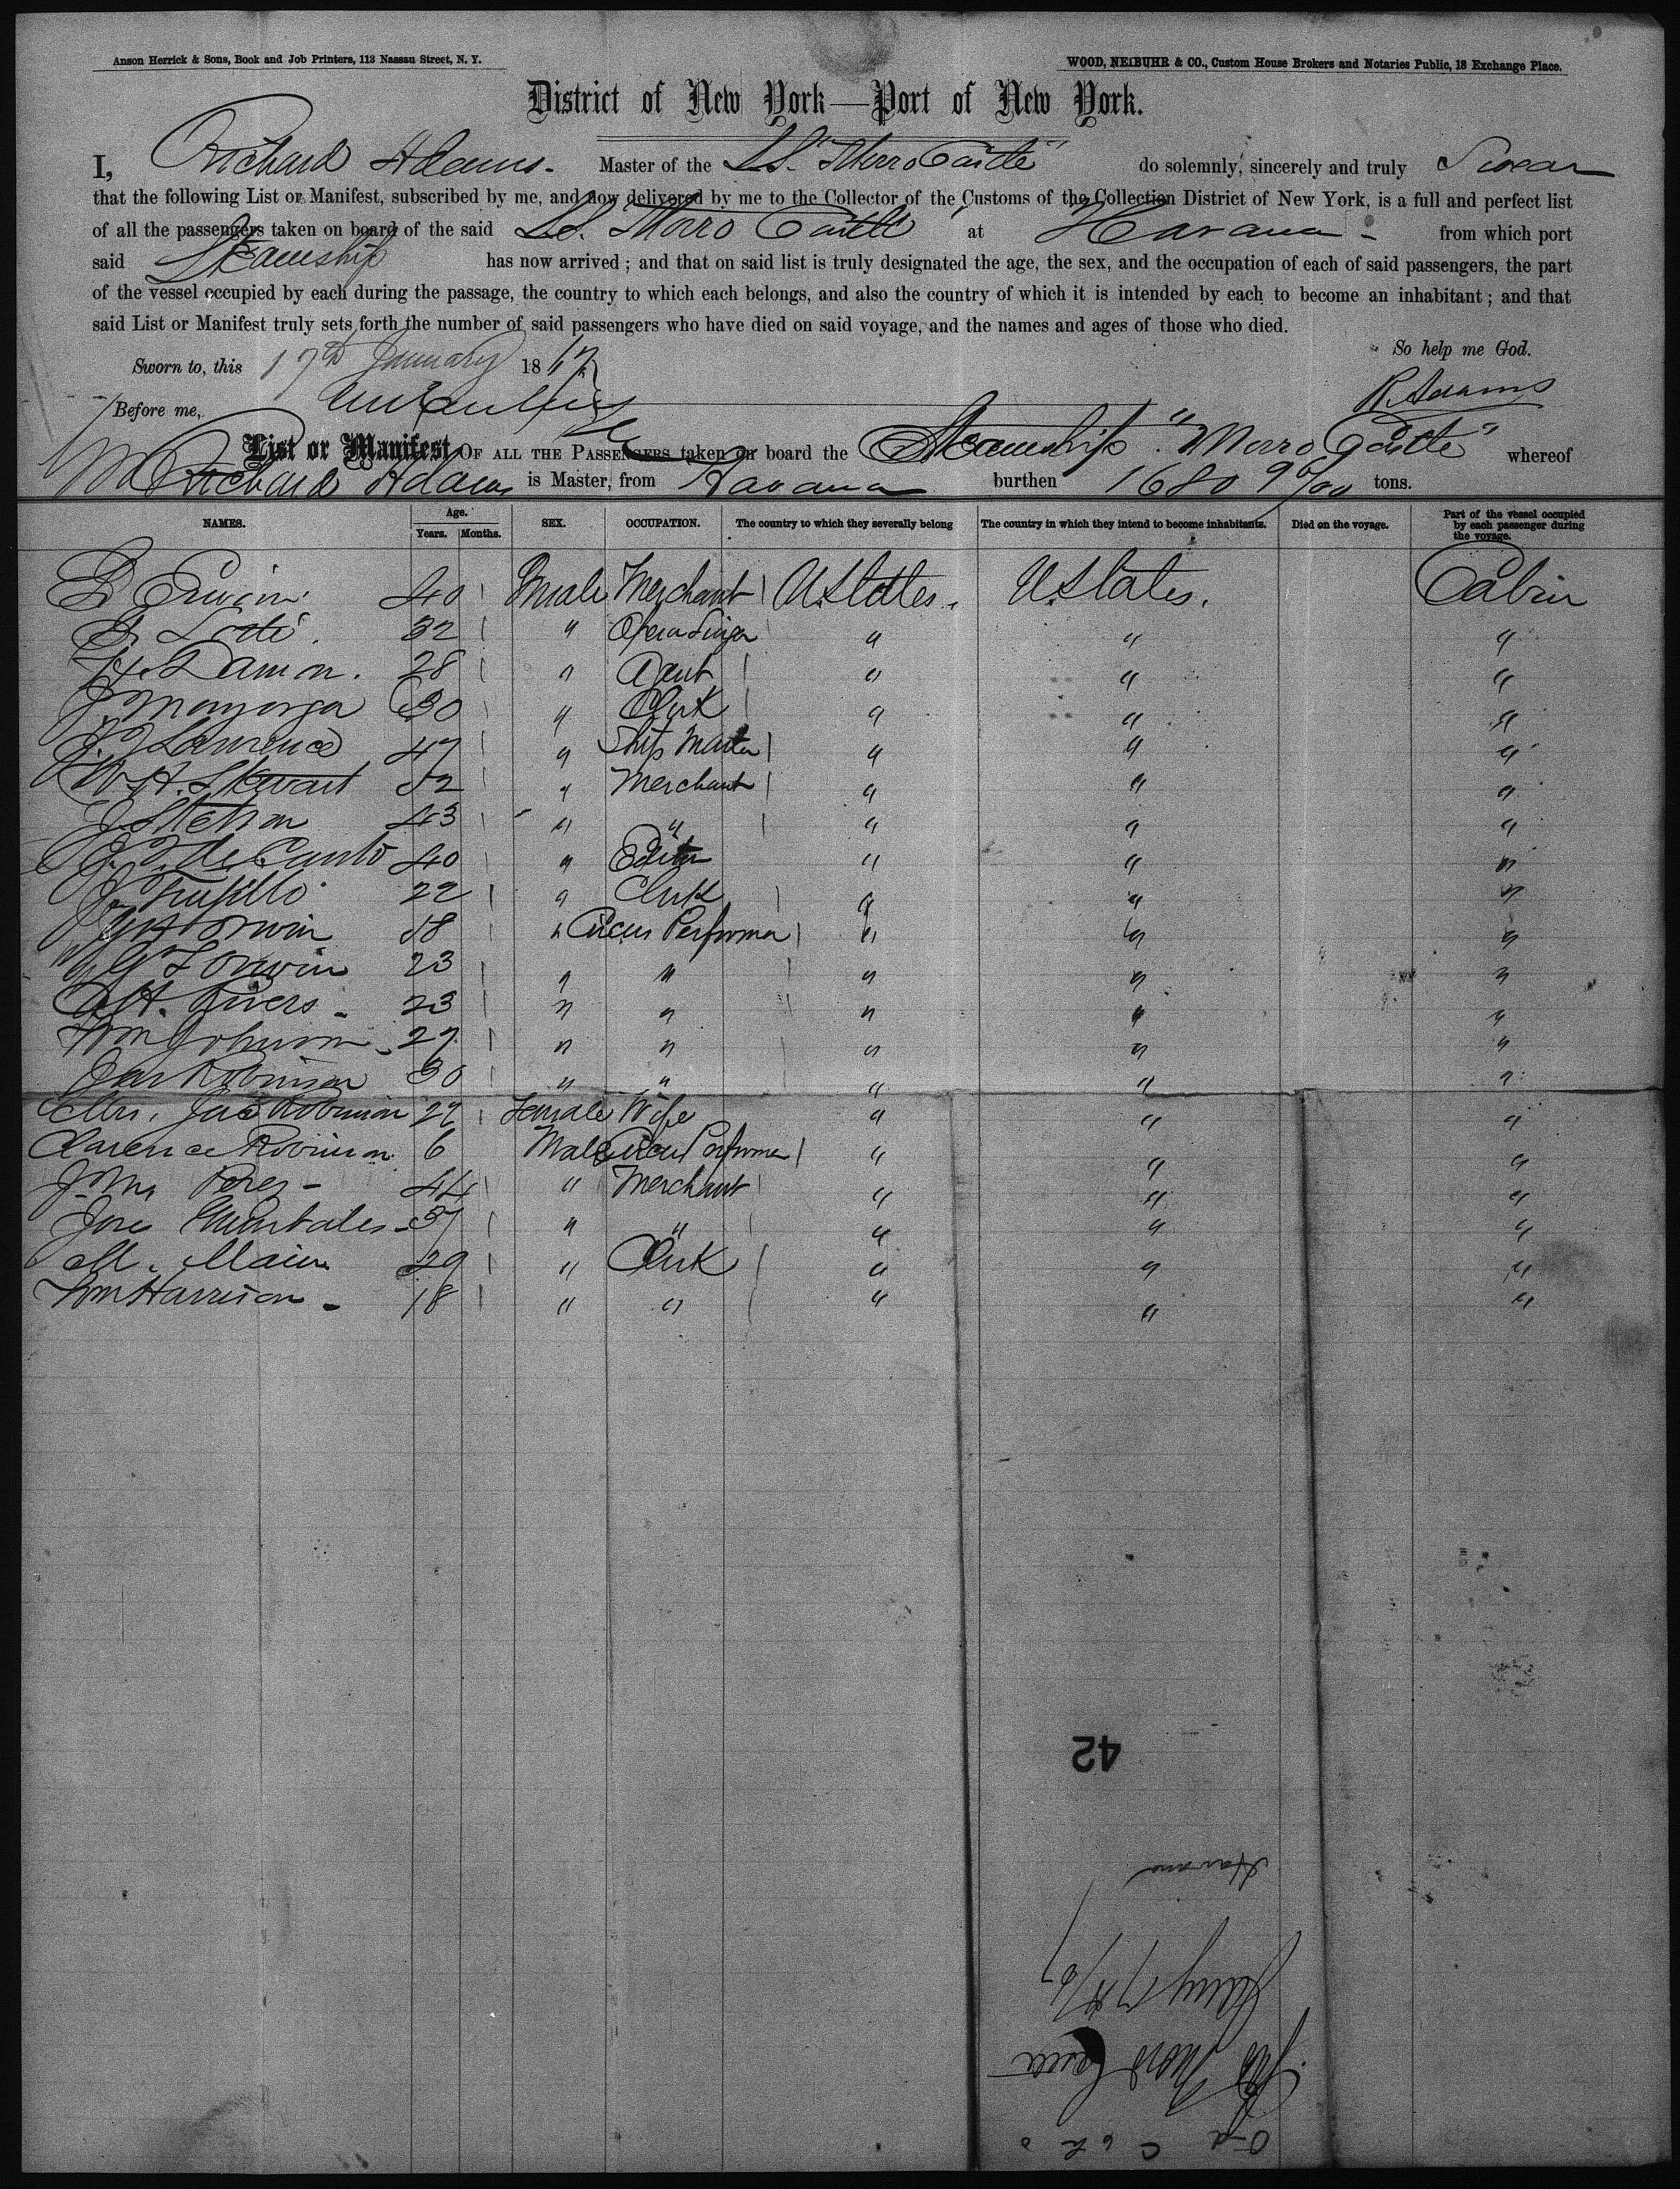 Anson Herrick & Sons, Book and Job Printers, 113 Nassau Street, N. Y.
WOOD, NEIBUHR & CO., Custom House Brokers and Notaries Public, 18 Exchange Place.
District of New York—Port of New York.
I, Richard Adams. Master of the SS. "Morro Castle" do solemnly, sincerely and truly Swear
that the following List or Manifest, subscribed by me, and now delivered by me to the Collector of the Customs of the Collection District of New York, is a full and perfect list
of all the passengers taken on board of the said SS. Morro Castle at Havana - from which port
said Steamship has now arrived ; and that on said list is truly designated the age, the sex, and the occupation of each of said passengers, the part
of the vessel occupied by each during the passage, the country to which each belongs, and also the country of which it is intended by each to become an inhabitant ; and that
said List or Manifest truly sets forth the number of said passengers who have died on said voyage, and the names and ages of those who died.
So help me God.
Sworn to, this 17th January 1867
R. Adams
Before me,
List or Manifest OF ALL THE PASSENGERS taken on board the Steamship "Morro Castle" whereof
Richard Adams is Master, from Havana burthen 1680 96/100 tons.
NAMES. Age. Years. Months. SEX. OCCUPATION. The country to which they severally belong The country in which they intend to become inhabitants. Died on the voyage. Part of the vessel occupied by each passenger during the voyage.
40 Male Merchant U. States. U. States. Cabin
32 " Opera Singer " " "
28 " Agent " " "
J. Mayorga 30 " Clerk " " "
Lawrence 47 " Ship Master " " "
W. H. Stewart 52 " Merchant " " "
J. Stetson 43 " " " " "
de Canto 40 " Editor " " "
J. Trujillo 22 " Clerk " " "
Orwin 18 " Circus Performer " " "
G F Orwin 23 " " " " "
A H. Rivers - 23 " " " " "
Wm Johnson - 27 " " " " "
Jas Robinson 30 " " " " "
Mrs. Jas Robinson 27 Female Wife " " "
Clarence Robinson 6 Male Circus Performer " " "
J. Ma Perez - 44 " Merchant " " "
Jose 37 " " " " "
M. 29 " Clerk " " "
Wm Harrison - 18 " " " " "
42
Havana
Jany 17th/67
SS Morro Castle